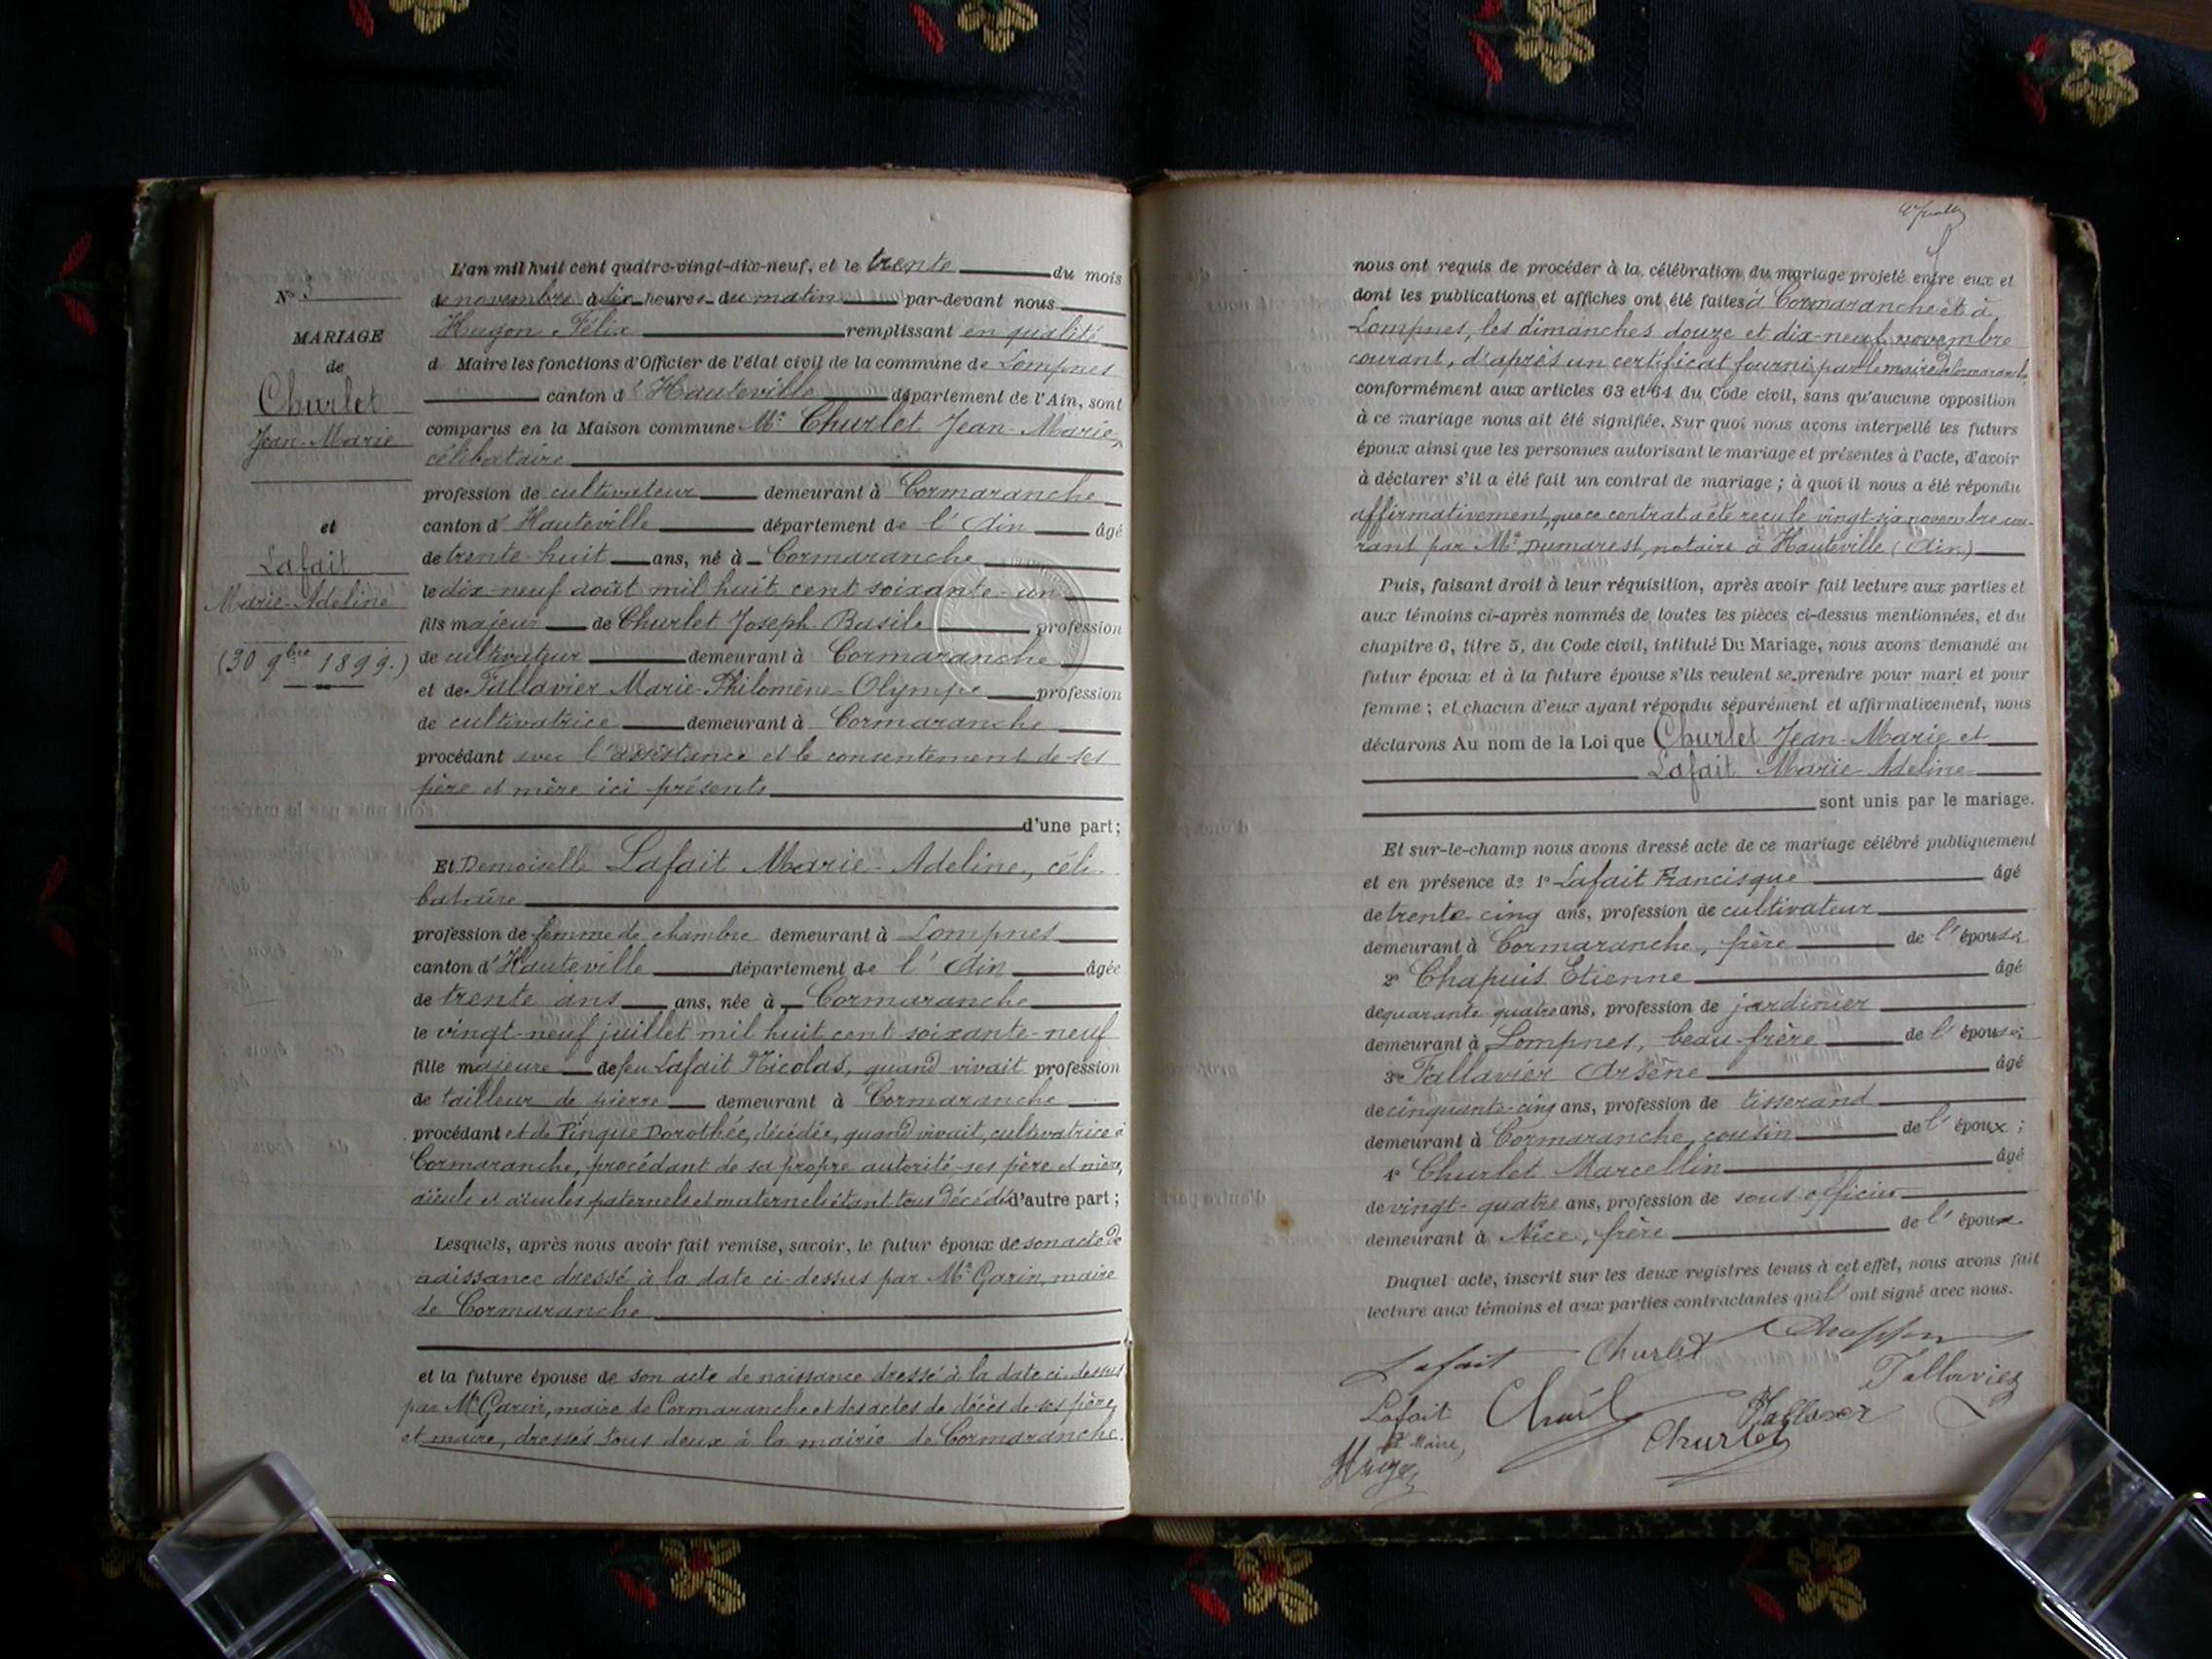 N° 3
MARIAGE
de
Churlet
Jean-Marie
et
Lafait
Marie-Adeline
(30 9bre 1899.)
L'an mil huit cent quatre-vingt-dix-neuf, et le trente du mois
de novembre à dix heures du matin par-devant nous
Hugon Félix remplissant en qualité
d Maire les fonctions d'Officier de l'état civil de la commune de Lompnes
canton d'Hauteville département de l'Ain, sont
comparus en la Maison commune Mr Churlet Jean-Marie,
célibataire
profession de cultivateur demeurant à Cormaranche
canton d'Hauteville département de l'Ain âgé
de trente-huit ans, né à Cormaranche
le dix-neuf août mil huit cent soixante-un
fils majeur de Churlet Joseph-Basile profession
de cultivateur demeurant à Cormaranche
et de Fallavier Marie-Philomène-Olympe profession
de cultivatrice demeurant à Cormaranche
procédant avec l'assistance et le consentement de ses
père et mère ici présents
d'une part;
Et Demoiselle Lafait Marie-Adeline, céli-
bataire
profession de femme de chambre demeurant à Lompnes
canton d'Hauteville département de l'Ain âgée
de trente ans ans, née à Cormaranche
le vingt-neuf juillet mil huit cent soixante-neuf
fille majeure de feu Lafait Nicolas, quand vivait profession
de tailleur de pierre demeurant à Cormaranche
procédant et de Pingue Dorothée, décédée, quand vivait, cultivatrice à
Cormaranche, procédant de sa propre autorité ses père et mère,
aïeuls et aïeules paternels et maternels étant tous décédés d'autre part;
Lesquels, après nous avoir fait remise, savoir, le futur époux de son acte de
naissance dressé à la date ci-dessus par Mr Garin, maire
de Cormaranche
et la future épouse de son acte de naissance dressé à la date ci-dessus
par Mr Garin, maire de Cormaranche et des actes de décès de ses père
et mère, dressés tous deux à la mairie de Cormaranche.
nous ont requis de procéder à la célébration du mariage projeté entre eux et
dont les publications et affiches ont été faites à Cormaranche et à
Lompnes, les dimanches douze et dix-neuf novembre
courant, d'après un certificat fourni par le maire de Cormaranche,
conformément aux articles 63 et 64 du Code civil, sans qu'aucune opposition
à ce mariage nous ait été signifiée. Sur quoi nous avons interpellé les futurs
époux ainsi que les personnes autorisant le mariage et présentes à l'acte, d'avoir
à déclarer s'il a été fait un contrat de mariage; à quoi il nous a été répondu
affirmativement, que ce contrat a été reçu le vingt-six novembre cou-
rant par Me Dumarest, notaire à Hauteville (Ain)
Puis, faisant droit à leur réquisition, après avoir fait lecture aux parties et
aux témoins ci-après nommés de toutes les pièces ci-dessus mentionnées, et du
chapitre 6, titre 5, du Code civil, intitulé Du Mariage, nous avons demandé au
futur époux et à la future épouse s'ils veulent se prendre pour mari et pour
femme; et chacun d'eux ayant répondu séparément et affirmativement, nous
déclarons Au nom de la Loi que Churlet Jean-Marie et
Lafait Marie-Adeline
sont unis par le mariage.
Et sur-le-champ nous avons dressé acte de ce mariage célébré publiquement
et en présence de 1° Lafait Francisque âgé
de trente-cinq ans, profession de cultivateur
demeurant à Cormaranche, frère de l'épouse;
2° Chapuis Etienne âgé
de quarante-quatre ans, profession de jardinier
demeurant à Lompnes, beau-frère de l'épouse;
3° Fallavier Arsène âgé
de cinquante-cinq ans, profession de tisserand
demeurant à Cormaranche, cousin de l'époux;
4° Churlet Marcellin âgé
de vingt-quatre ans, profession de sous officier
demeurant à Nice, frère de l'époux.
Duquel acte, inscrit sur les deux registres tenus à cet effet, nous avons fait
lecture aux témoins et aux parties contractantes qui ont signé avec nous.
Lafait Churlet
Fallavier
Lafait
Churlet
Le Maire,
Hugon